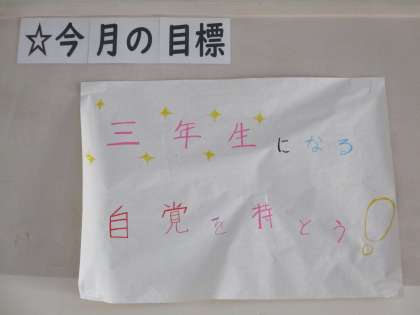 ☆今月の目標
三年生になる
自覚を持とう!